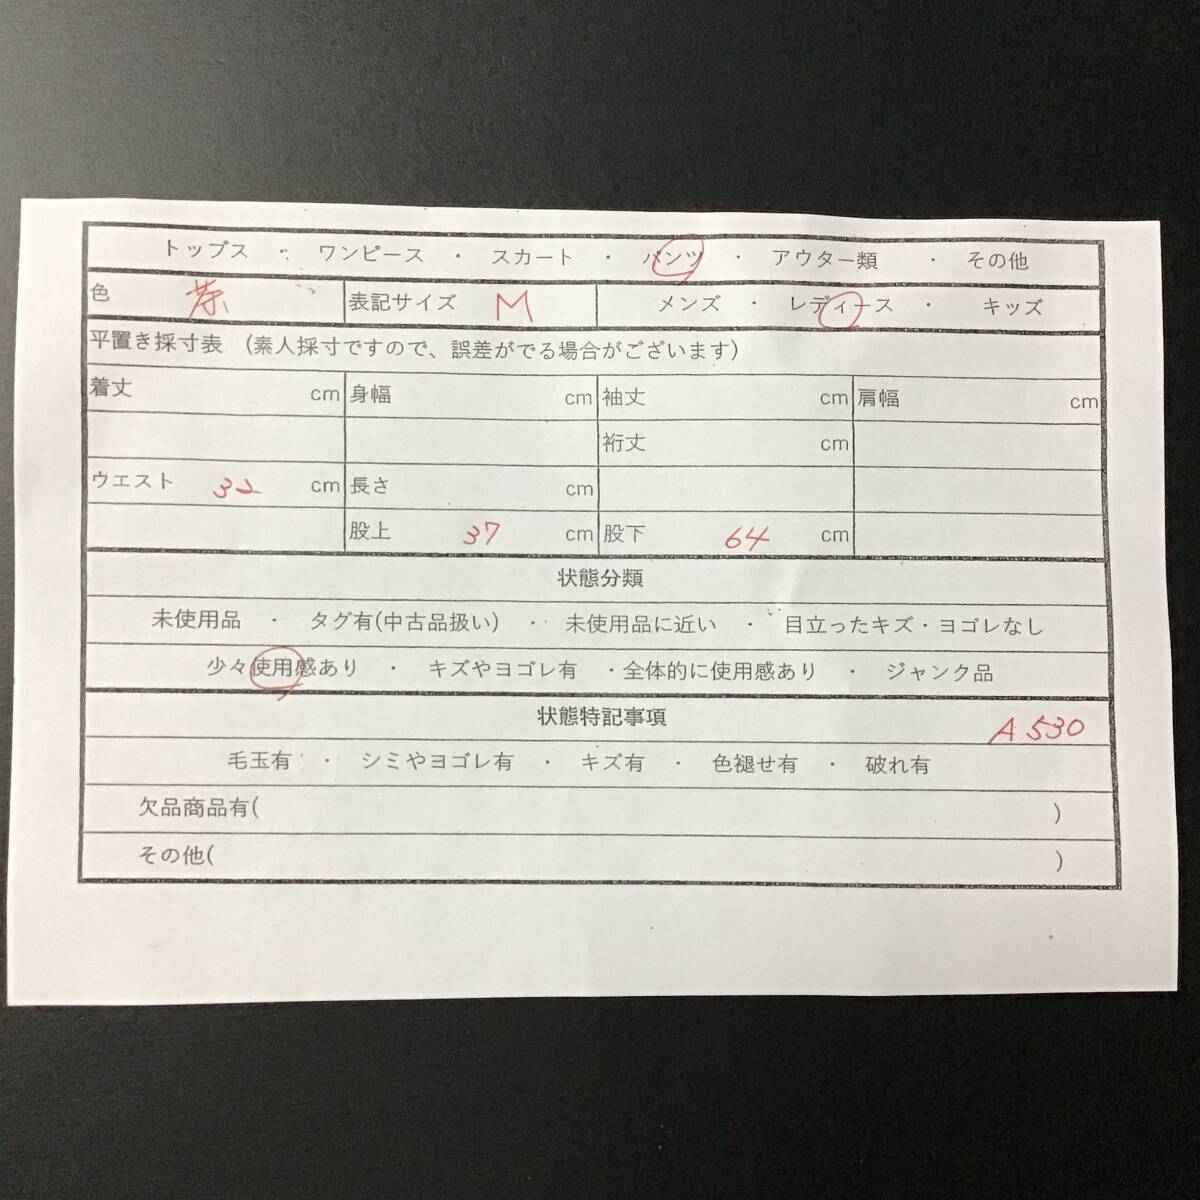 トップス ・ ワンピース ・ スカート ・ パンツ ・ アウター類 ・ その他
色 茶 表記サイズ M メンズ ・ レディース ・ キッズ
平置き採寸表 (素人採寸ですので、誤差がでる場合がございます)
着丈 cm 身幅 cm 袖丈 cm 肩幅 cm
裄丈 cm
ウエスト 32 cm 長さ cm
股上 37 cm 股下 64 cm
状態分類
未使用品 ・ タグ有(中古品扱い) ・ 未使用品に近い ・ 目立ったキズ・ヨゴレなし
少々使用感あり ・ キズやヨゴレ有 ・全体的に使用感あり ・ ジャンク品
状態特記事項 A530
毛玉有 ・ シミやヨゴレ有 ・ キズ有 ・ 色褪せ有 ・ 破れ有
欠品商品有( )
その他( )